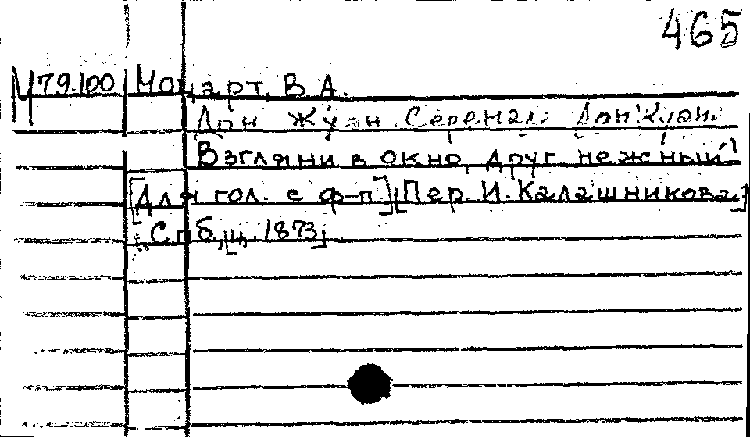 465
М79.100 Моцарт, В.А.
Дон Жуан. Серенада Дон Жуана
Взгляни в окно, друг нежный
[Для гол. с ф-п] [Пер. И. Калашникова.]
Спб, ц. 1873